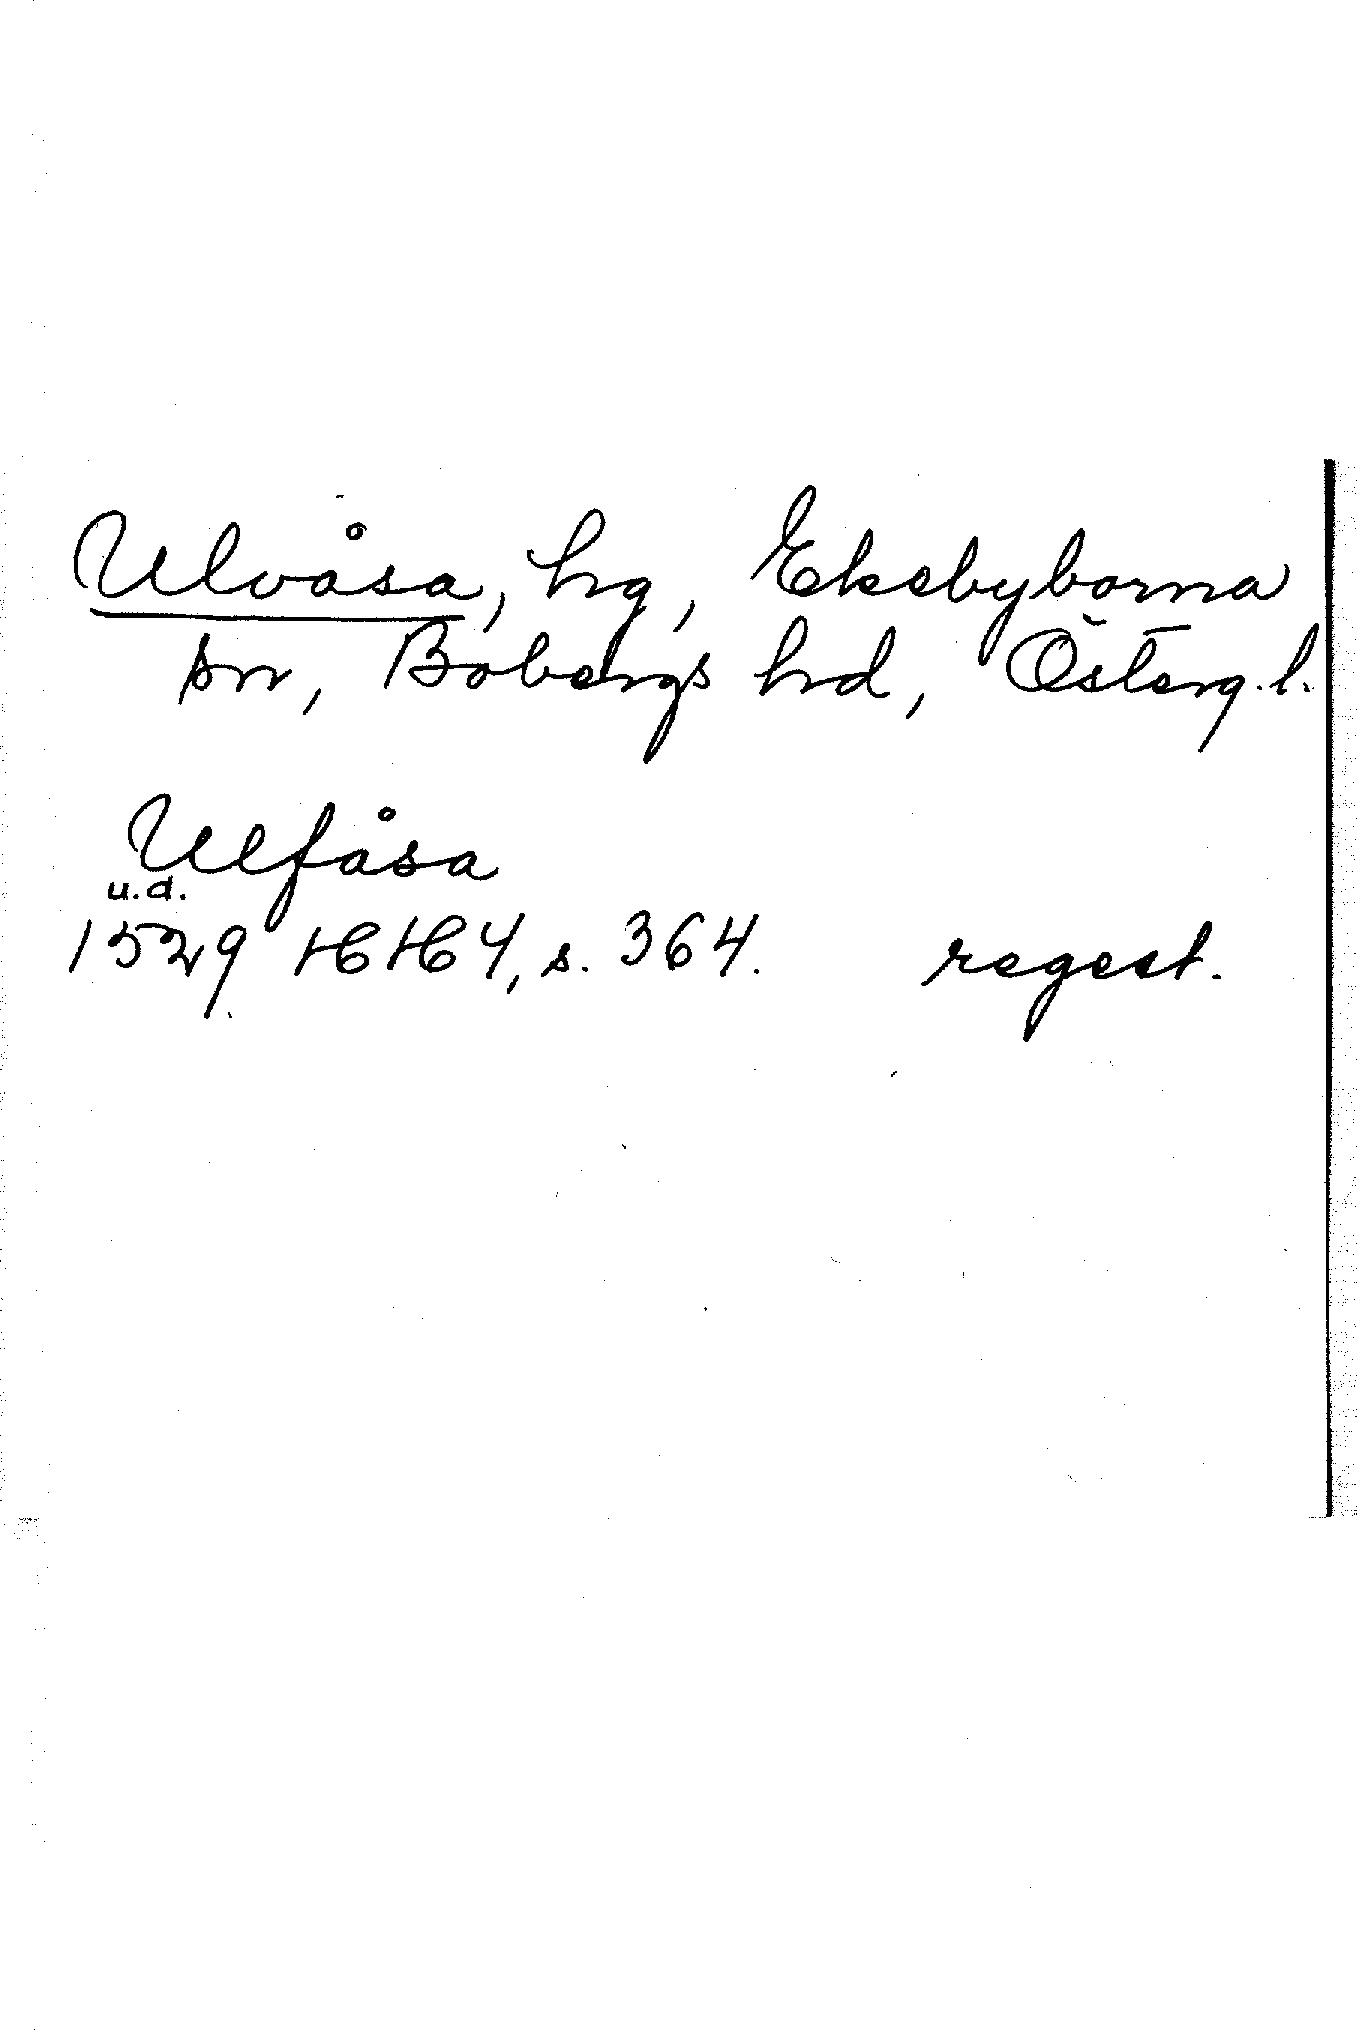 Ulvåsa, hg, Ekebyborna
sn, Bobergs hd, Österg.l.
Ulfåsa
u.d.
1529 HH 4, s. 364. regest.